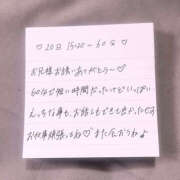 ♡ 20日 15:20 ~ 60分 ♡
お兄様お誘いありがとう〜♡
60分で短い時間だったけどいっぱい
えっちな事も、お話しもできて良かったです
お仕事頑張ってね♡また会おうね♪